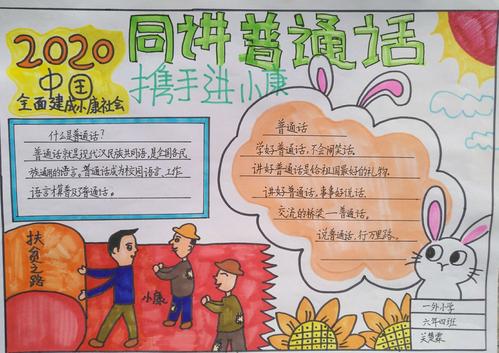 2020
中国
全面建成小康社会
同讲普通话
携手进小康
什么是普通话?
普通话就是现代汉民族共同语,是全国各民
族通用的语言。普通话成为校园语言、工作
语言才算普及了普通话。
普通话
学好普通话,不会闹笑话。
讲好普通话是给祖国最好的礼物。
讲好普通话,事事好说话。
交流的桥梁——普通话。
说普通话,行万里路。
扶贫之路
小康
一外小学
六年四班